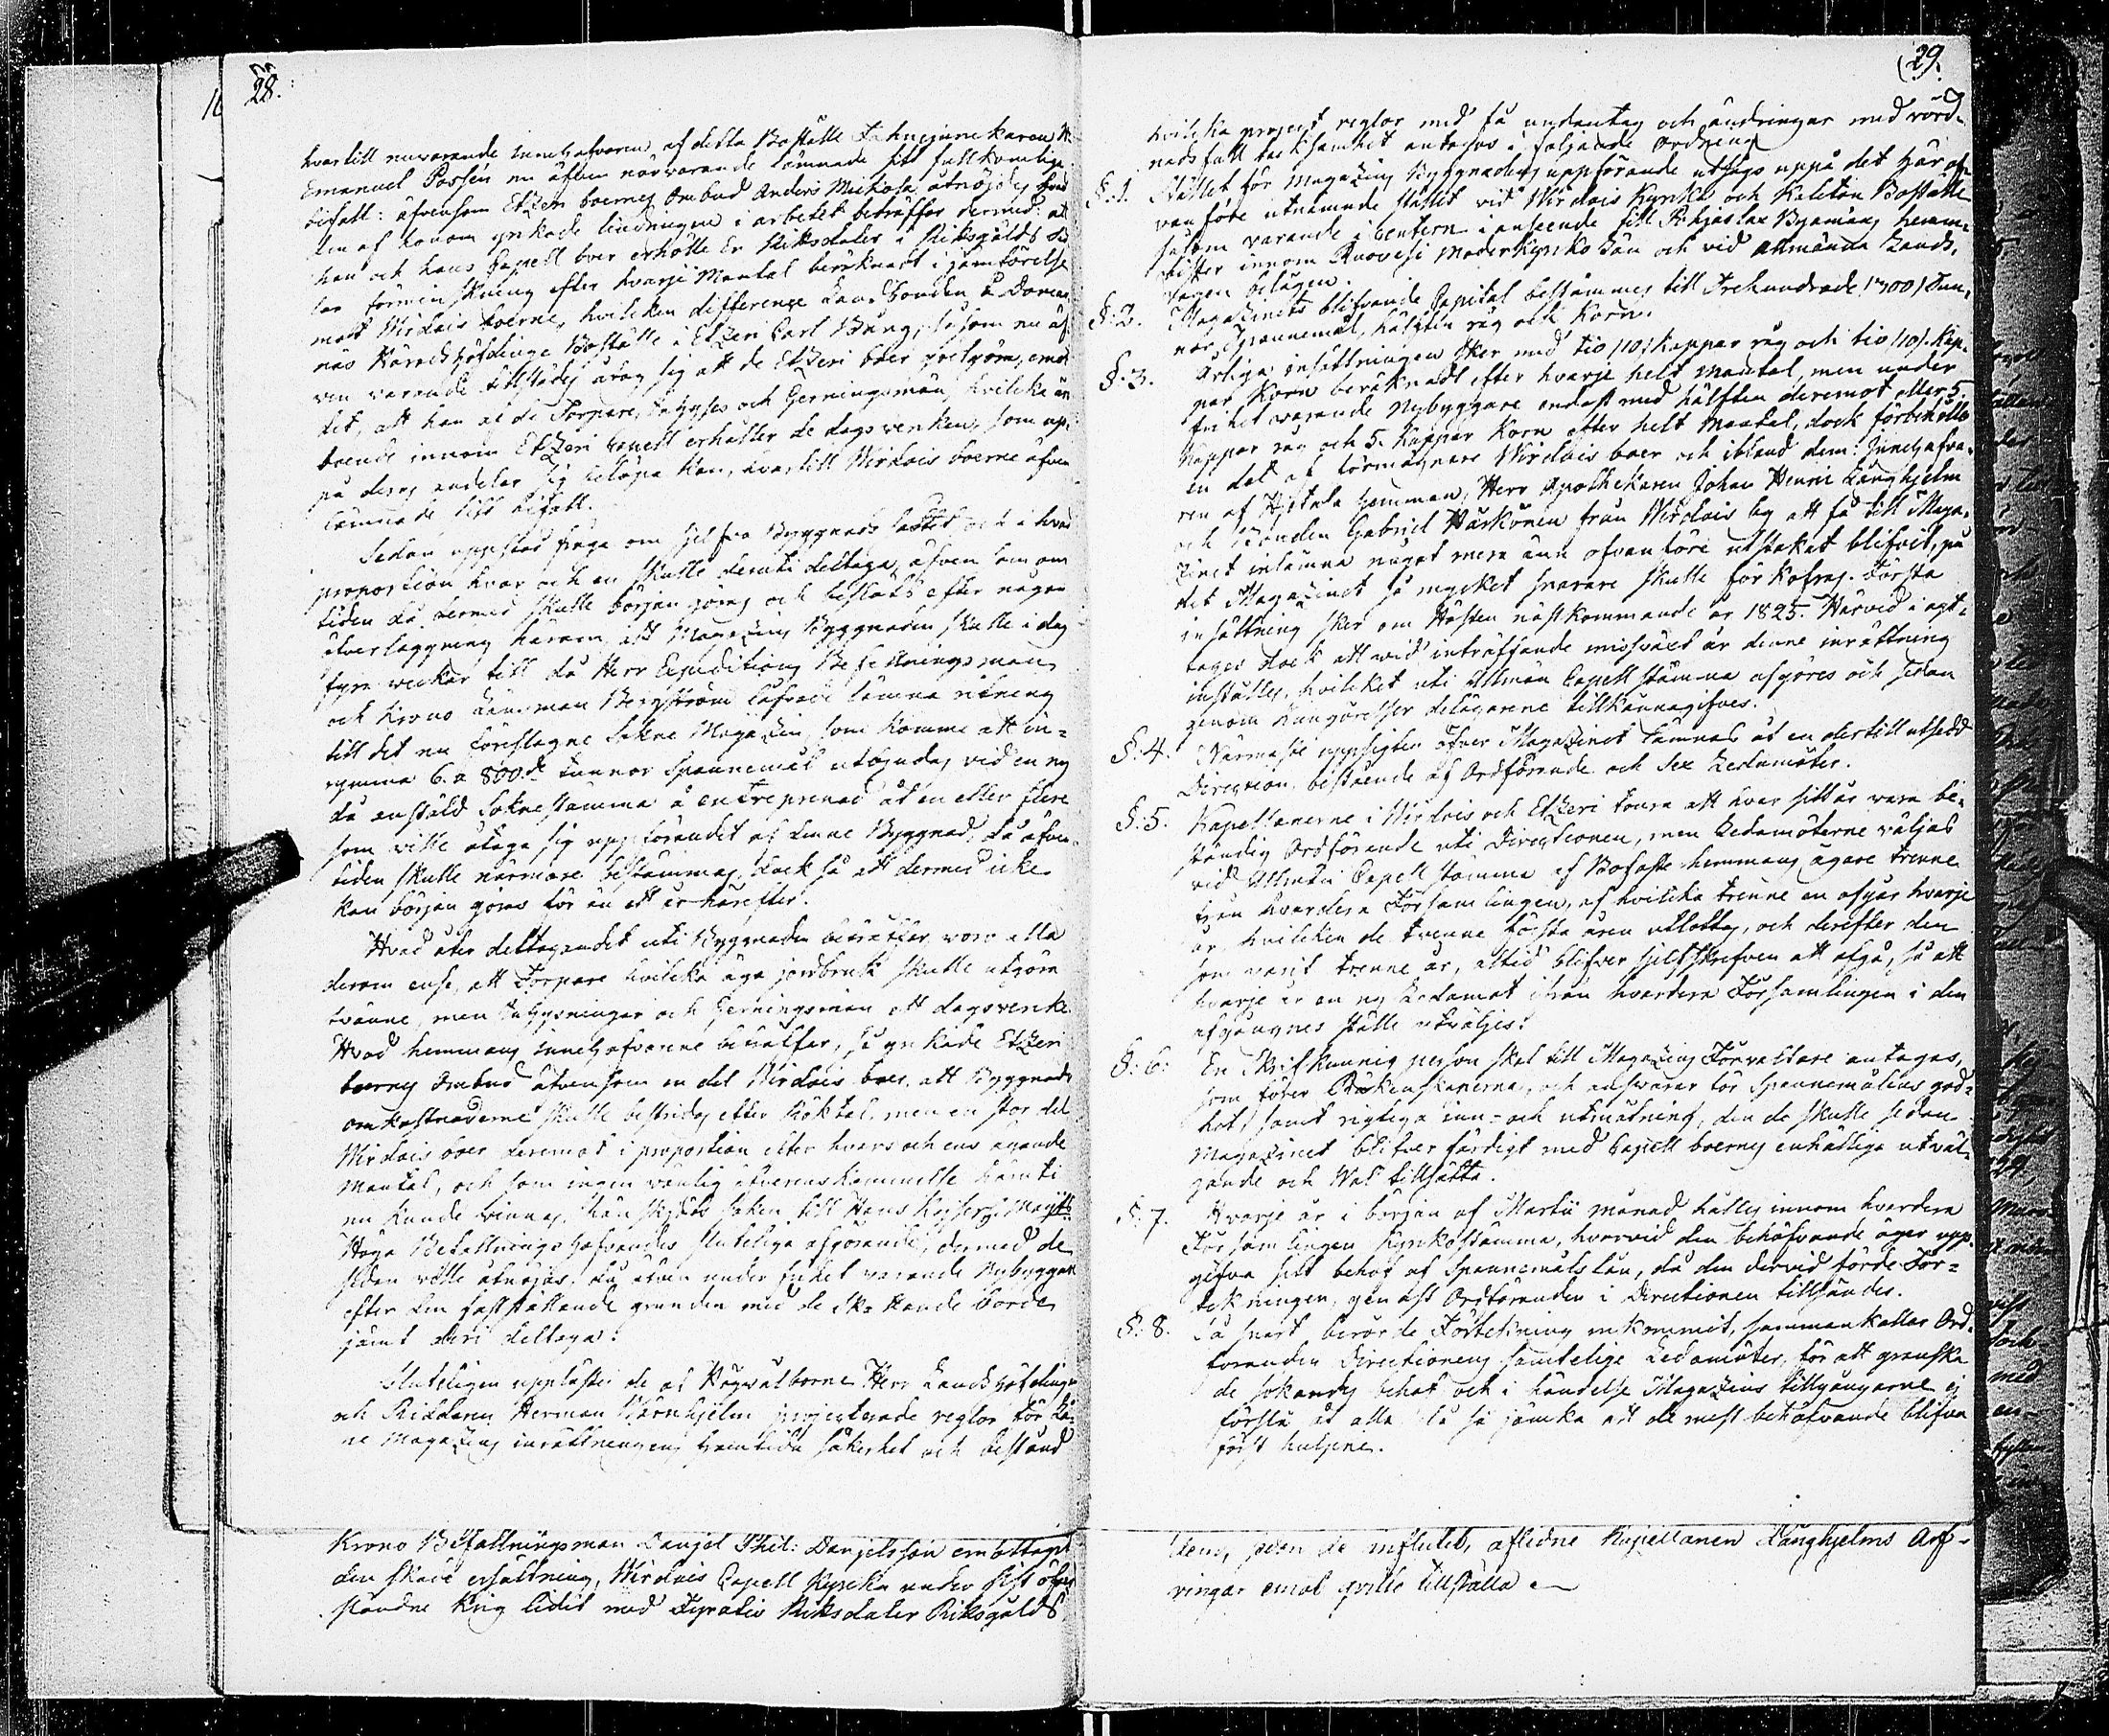 28.
hvartill nuvarande Innehafvaren af detta Boställe Fahnejunckaren H.
Emanuel Possén nu äfven närvarande lämnade sitt fullkomliga
bifall: äfvensom Etzeri boernes Ombud Anders Mickola åtnöjdes
den af honom yrkade lindringen i arbetet beträffar dermed: at
han och hans Capell boer erhölle En Riksdaler i Riksgälds
för förminskning efter hvarje Mantal beräknadt i jämförelse
mot Wirdois boerne, hvilken difference Landbonden å
näs Häradshöfdinge Boställe i Etzeri Carl Bång, såsom nu äf-
ven varande tillstädes åtog sig att de Etzeri boer godtgöra, emot
det, att han af de Torpare, Inhyses och Gerningsmän, hvilka än
boende innom Etzeri Capell erhåller de dagsverken, som up-
på deras andelar sig belöpa kan, hvartill Wirdois boerne äfven
lämnade sitt bifall.
Sedan uppstod fråga om sjelfva Byggnads sättet och i hvad
proportion hvar och en skulle deruti deltaga, äfven som om
tiden då dermed skulle början göras och beslöts efter någon
öfverläggning härom att Magazins Byggnaden skulle i dag
fyra veckor till då Herr Expeditions Befallningsman
och Krono Länsman Bergström lofvade lämna ritning
till det nu föreslagne Sokne Magazin, som komme att in-
rymma 6. a 800.de tunnor Spannemål utbjudas vid en ny
då anstäld Soknestämma å entreprenad åt en eller flere
som ville åtaga sig uppförandet af denne Byggnad, då äfven
tiden skulle närmare bestämmas, dock så att dermed icke
kan början göras för än ett år härefter.
Hvad åter deltagandet uti Byggnaden beträffar voro alla
derom ense, att Torpare hvilka äga jordbruk skulle utgöra
tvänne, men Inhysningar och Gerningsmän ett dagsverke
Hvad hemmans Innehafvarene beträffar, så yrkade Etzeri
boernes Ombud äfvensom en del Wirdois boer, att Byggnads
omkostnaderne skulle bestridas efter Röktal, men en stor del
Wirdois boer deremot i proportion efter hvars och ens ägande
Mantal, och som ingen vänlig öfverenskommelse häruti
nu kunde vinnas, hänskjöts saken till Hans Kejserl. Majts
Höga Befallningshafvandes slutliga afgörande, dermed de
sedan ville åtnöjas: då äfven under frihet varande Nybyggare
efter den fastställande grunden med de Skattande borde
jämt deri deltaga.
Slutligen upplästes de af Högvälborne Herr Landshöfdingen
och Riddaren Herman Wärnhjelm projecterade reglor för den-
ne Magazins inrättningens framtida säkerhet och bestånd
Krono Befallningsman Danjel Phil: Danjelsson emottaget
den skade ersättning, Wirdois Capell Kyrka under sist öfver-
ståndne krig lidit med Fyratio Riksdaler Riksgälds
29.
hvilka project reglor med få undantag och ändringar med vörd-
nadsfull tacksamhet antogos i följande ordning
§.1. Stället för Magazins Byggnadens uppförande utsågs uppå det här of-
van före utnämnde stället vid Wirdois Kyrka och Kaletön Boställe
såsom varande i Centern i anseende till Rihjaslax Byamäns hemm-
vister innom Ruovesi Moderkyrko Län och vid allmänna Lands-
vägen belägen.
§.2. Magazinets blifvande Capital bestämmes till Trehundrade (300) Tun-
nor Spannemål, hälften råg och Korn.
§.3. Årliga insättningen sker med tio (10) Kappar råg och tio (10) Kap-
par Korn beräknadt efter hvarje helt Mantal, men under
frihet varande Nybyggare endast med hälften deremot eller 5.
Kappar råg och 5. Kappar Korn efter helt Mantal, dock förbehöllo
en del af förmögnare Wirdois boer och ibland dem: Innehafva-
ren af Hjetala hemman, Herr Apothekaren Johan Henric Långhjelm
och Bonden Gabriel Härkönen från Wirdois by att få till Maga-
zinet inlämna något mera änn ofvanföre utstakat blifvit, på
det Magazinet så mycket snarare skulle förkofras. Första
insättning sker om Hösten nästkommande år 1825. Härvid i akt-
tages dock att vid inträffande missväxt år denne inrättning
inställes, hvilket uti Allmän Capellstämma afgöres och sedan
genom kungörelser delägarene tillkännagifves.
§.4. Närmaste uppsigten öfver Magazinet lämnas åt en dertill utsedd
Direction, bestående af Ordförande och Sex Ledamöter.
§.5. Kapellanerne i Wirdois och Etzeri torde att hvar sitt år vara be-
ständig Ordförande uti Directionen, men Ledamöterne väljas
vid Allmän Capell stämma af Bofaste hemmans ägare trenne
från hvardera Församlingen, af hvilka trenne en afgår hvarje
år hvilken de tvenne första åren utlottas, och derefter den
som varit trenne år, altid blifver sjelfskrifven att afgå, så att
hvarje år en ny Ledamot ifrån hvardera Församlingen i den
afgångnes ställe utväljes.
§.6. En Skrifkunnig person skal till Magazins Förvaltare antagas,
som förer Räkenskaperna, och ansvarar för Spannemålens god-
het, samt rigtiga inn- och utmätning, den de skulle sedan
Magazinet blifver färdigt med Capell boernes enhälliga utväl-
jande och Wal tillsätta.
§.7. Hvarje år i början af Martii månad hålles innom hvardera
Församlingen Kyrkostämma, hvarvid den behöfvande äger upp-
gifva sitt behof af Spannemåls lån, då den dervid förde För-
tekningen, genast Ordföranden i Directionen tillsändes.
§.8. Så snart berörde Förtekning inkommit, sammankallar Ord-
föranden Directionens samtelige Ledamöter, för att granska
de sökandes behof och i händelse Magazins tillgångarne ej
förslå åt alla då så jämka att de mest behöfvande blifva
först hulpne.
dens, sedan de influtit, aflidne Kapellanen Långhjelms Arf-
vingar emot qvitto tillställa